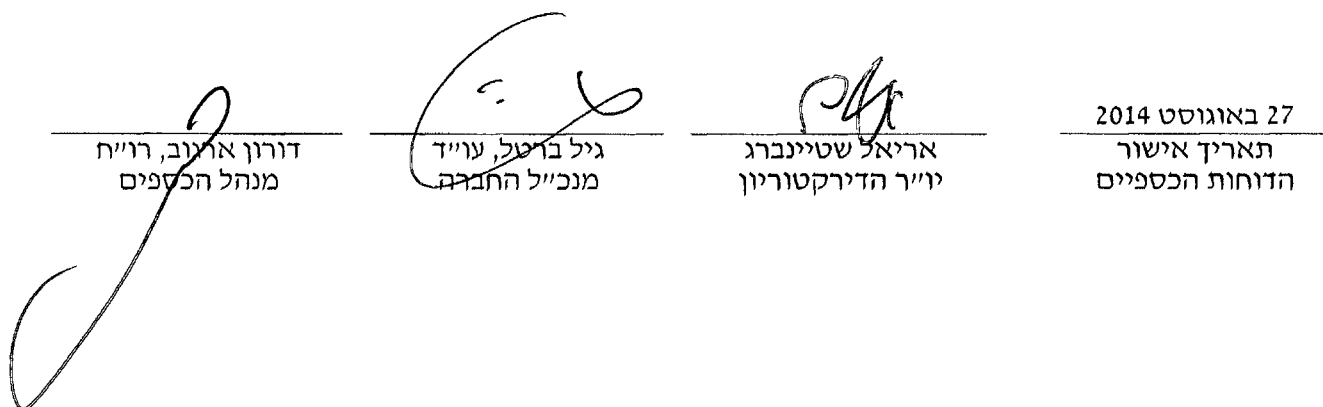 27 באוגוסט 2014
תאריך אישור
הדוחות הכספיים
אריאל שטיינברג
יו״ר הדירקטוריון
גיל ברטל, עו״ד
מנכ״ל החברה
דורון ארגוב, רו״ח
מנהל הכספים